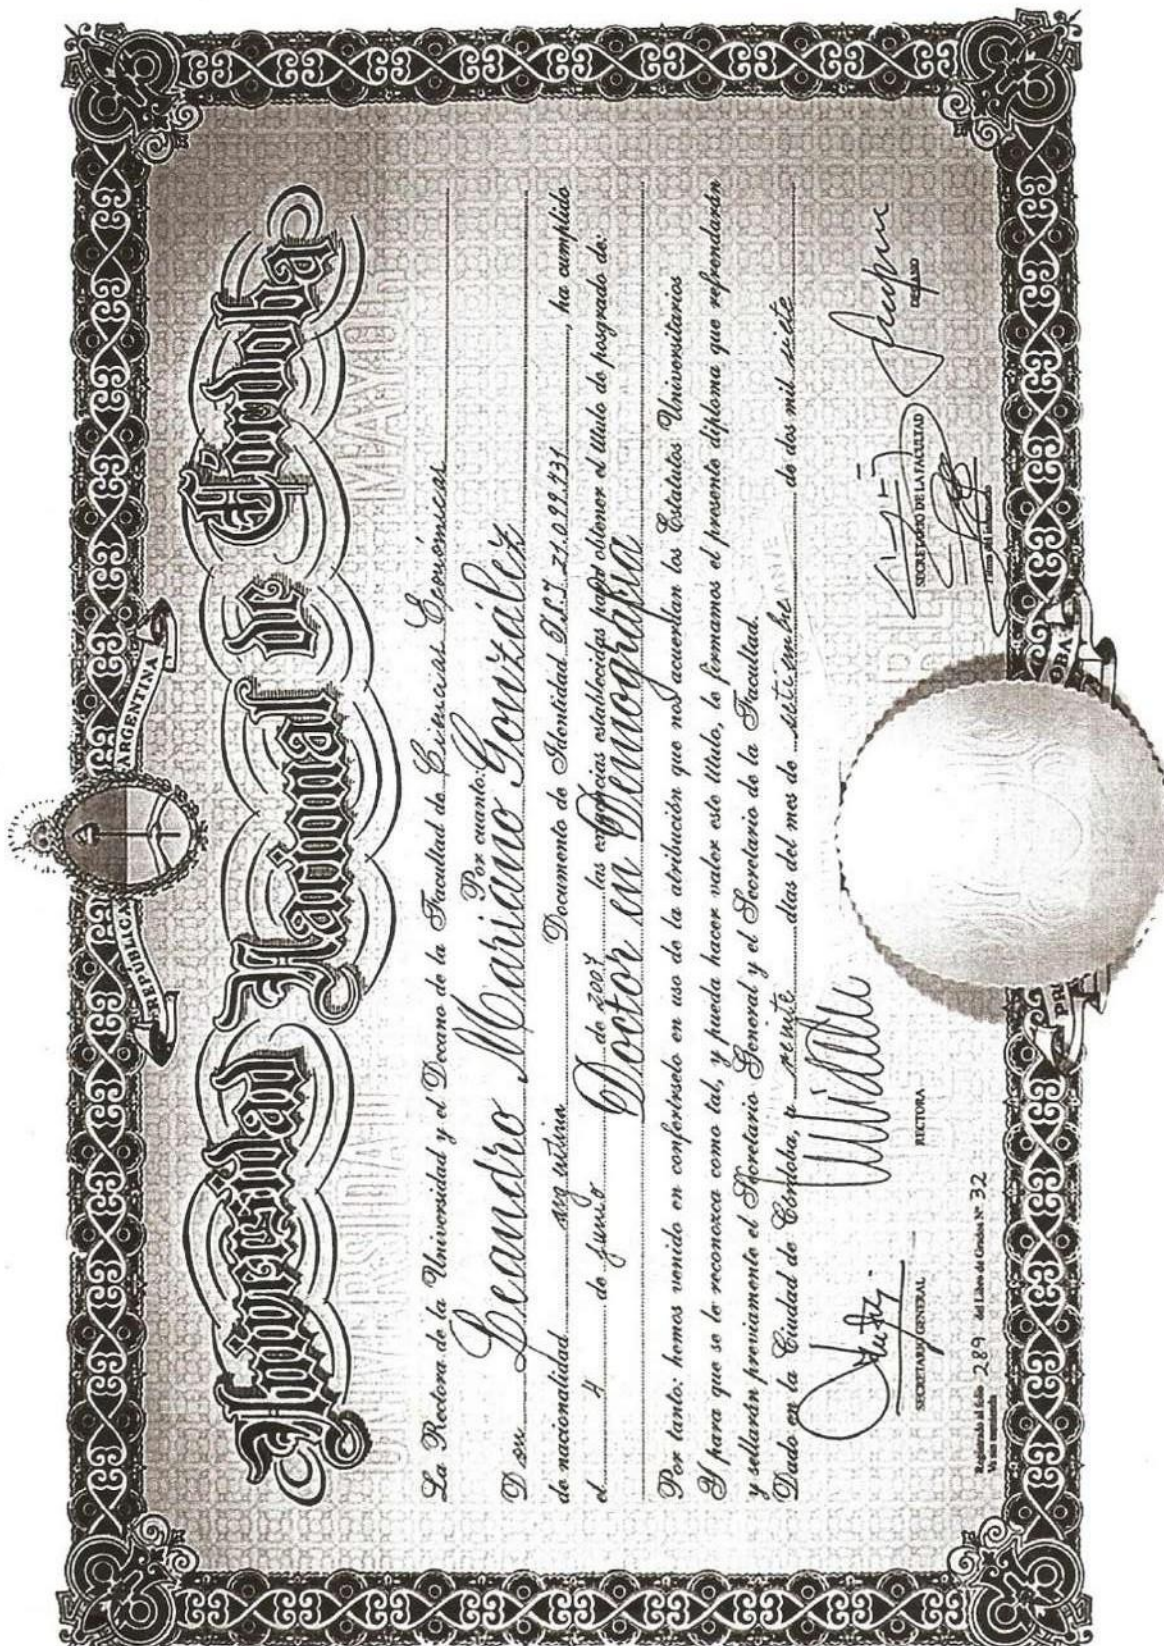 REPÚBLICA ARGENTINA
Universidad Nacional de Córdoba
La Rectora de la Universidad y el Decano de la Facultad de Ciencias Económicas
Por cuanto:
D on Leandro Mariano González
de nacionalidad argentina Documento de Identidad D.N.I 21.099.731, ha cumplido
el 4 de junio de 2007 las exigencias establecidas para obtener el título de posgrado de:
Doctor en Demografía
Por tanto: hemos venido en conferírselo en uso de la atribución que nos acuerdan los Estatutos Universitarios
Y para que se le reconozca como tal, y pueda hacer valer este título, le firmamos el presente diploma que refrendarán
y sellarán previamente el Secretario General y el Secretario de la Facultad.
Dado en la Ciudad de Córdoba, a veinte días del mes de setiembre de dos mil siete
SECRETARIO GENERAL
RECTORA
SECRETARIO DE LA FACULTAD
DECANO
Registrado al folio 289 del Libro de Grados Nº 32